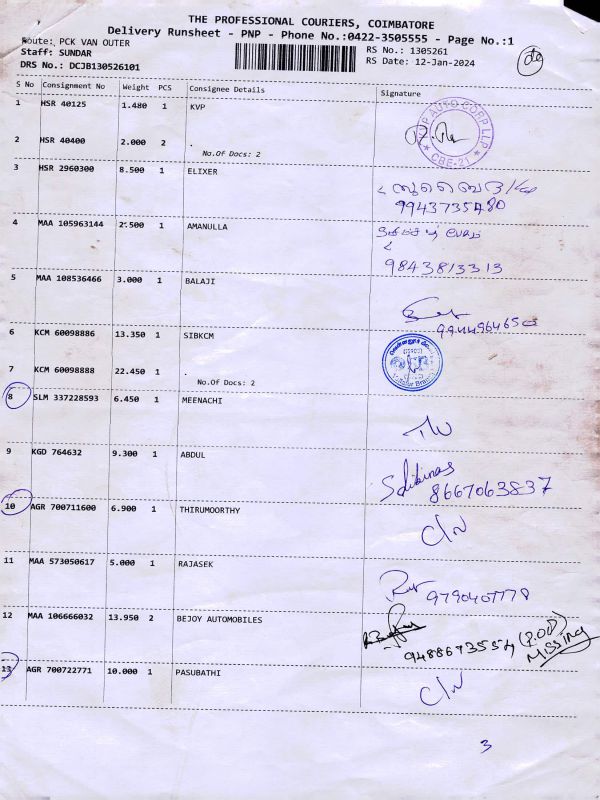 THE PROFESSIONAL COURIERS, COIMBATORE
Delivery Runsheet - PNP - Phone No.:0422-3505555 - Page No.:1
Route: PCK VAN OUTER
RS No.: 1305261
Staff: SUNDAR
RS Date: 12-Jan-2024
DRS No.: DCJB130526101
S No Consignment No Weight PCS Consignee Details Signature
1 HSR 40125 1.480 1 KVP
KVP AUTO CORP LLP
★ CBE-21 ★
2 HSR 40400 2.000 2 .
No.Of Docs: 2
3 HSR 2960300 8.500 1 ELIXER
9943735480
4 MAA 105963144 2.500 1 AMANULLA
9843813313
5 MAA 108536466 3.000 1 BALAJI
6 KCM 60098886 13.350 1 SIBKCM
7 KCM 60098888 22.450 1 .
No.Of Docs: 2
8 SLM 337228593 6.450 1 MEENACHI
9 KGD 764632 9.300 1 ABDUL
8667063837
10 AGR 700711600 6.900 1 THIRUMOORTHY
C/N
11 MAA 573050617 5.000 1 RAJASEK
9790407778
12 MAA 106666032 13.950 2 BEJOY AUTOMOBILES
9488673554 (P.OD)
MISSING
13 AGR 700722771 10.000 1 PASUBATHI
C/N
3